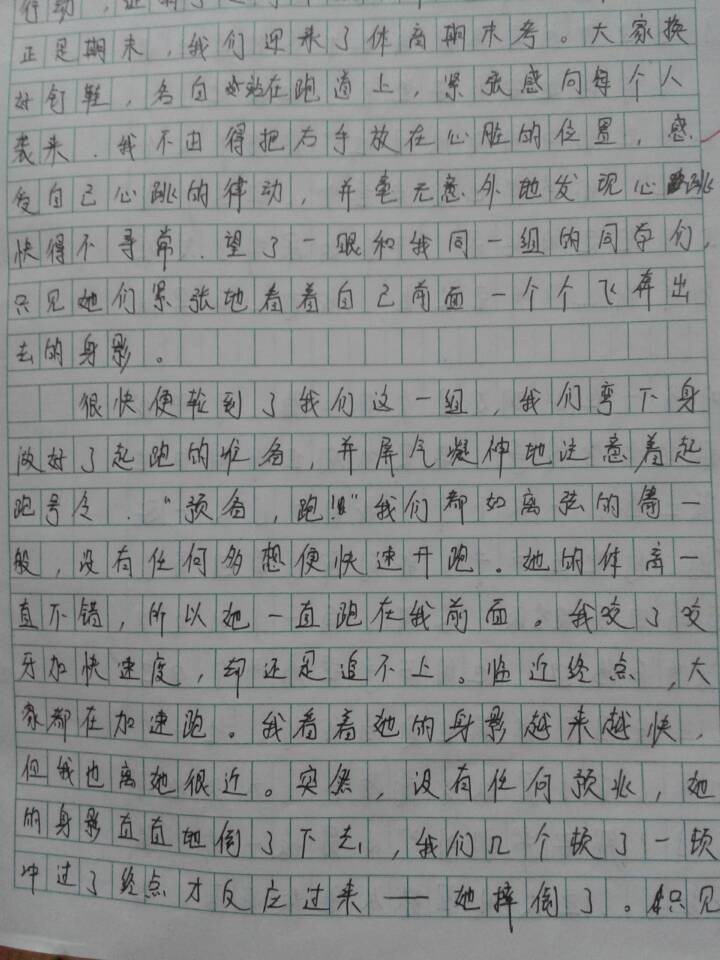 行动，
正是期末，我们迎来了体育期末考。大家换
好钉鞋，各自站在跑道上，紧张感向每个人
袭来．我不由得把右手放在心脏的位置，感
受自己心跳的律动，并毫无意外地发现心跳
快得不寻常．望了一眼和我同一组的同学们，
只见她们紧张地看着自己前面一个个飞奔出
去的身影。
很快便轮到了我们这一组，我们弯下身
做好了起跑的准备，并屏气凝神地注意着起
跑号令．“预备，跑！”我们都如离弦的箭一
般，没有任何多想便快速开跑。她的体育一
直不错，所以她一直跑在我前面。我咬了咬
牙加快速度，却还是追不上。临近终点，大
家都在加速跑。我看着她的身影越来越快，
但我也离她很近。突然，没有任何预兆，她
的身影直直地倒了下去，我们几个顿了一顿
冲过了终点才反应过来——她摔倒了。只见